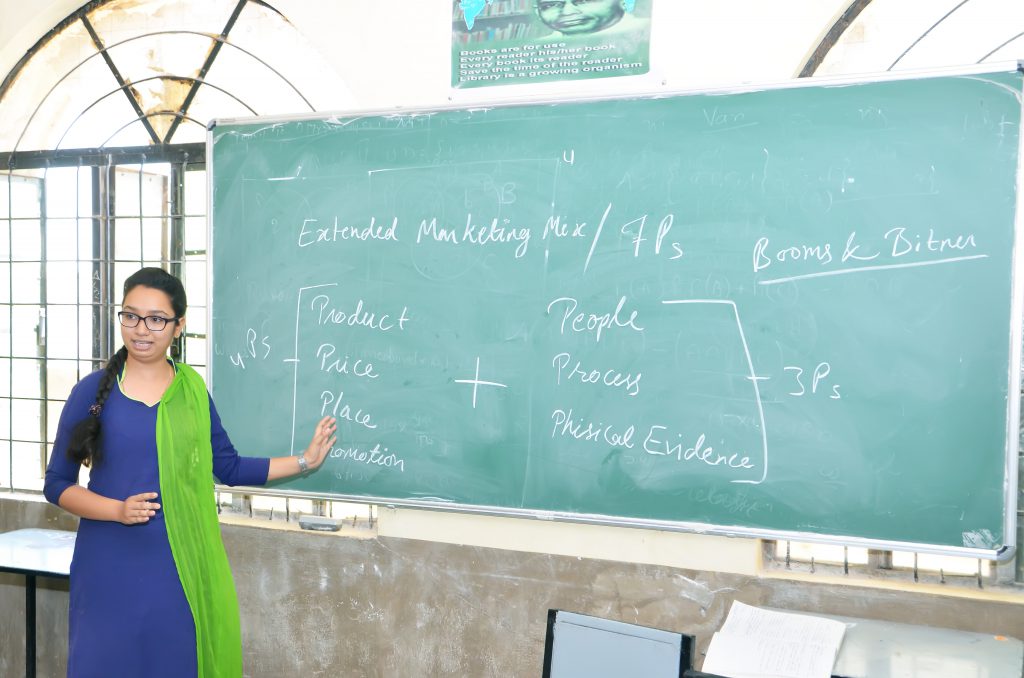 Books are for use
Every reader his/her book
Every book its reader
Save the time of the reader
Library is a growing organism
Extended Marketing Mix / 7Ps
Booms & Bitner
4 Ps
Product
Price
Place
romotion
+
People
Process
Phisical Evidence
3Ps